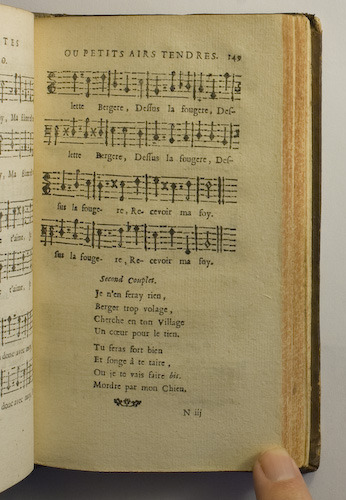 TES
O.
y, Ma
y, Ma
e t'aime,
e t'aime,
donc avec moy,
donc avec moy,
OU PETITS AIRS TENDRES. 149
lette Bergere, Dessus la fougere, Des-
lette Bergere, Dessus la fougere, Des-
sus la fouge- re, Re- cevoir ma foy.
sus la fouge- re, Re- cevoir ma foy.
Second Couplet.
Je n'en feray rien,
Berger trop volage,
Cherche en ton Village
Un cœur pour le tien.
Tu feras fort bien
Et songe à te taire,
Ou je te vais faire bis.
Mordre par mon Chien.
N iij